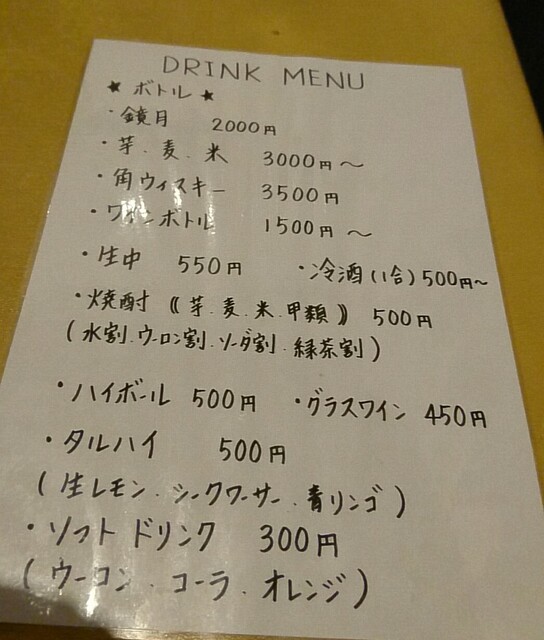 DRINK MENU
★ ボトル ★
・鏡月 2000円
・芋.麦.米 3000円〜
・角ウィスキー 3500円
・ワインボトル 1500円〜
・生中 550円 ・冷酒(1合)500円〜
・焼酎《芋.麦.米.甲類》 500円
(水割.ウーロン割.ソーダ割.緑茶割)
・ハイボール 500円 ・グラスワイン 450円
・タルハイ 500円
(生レモン.シークワーサー.青リンゴ)
・ソフトドリンク 300円
(ウーコン.コーラ.オレンジ)